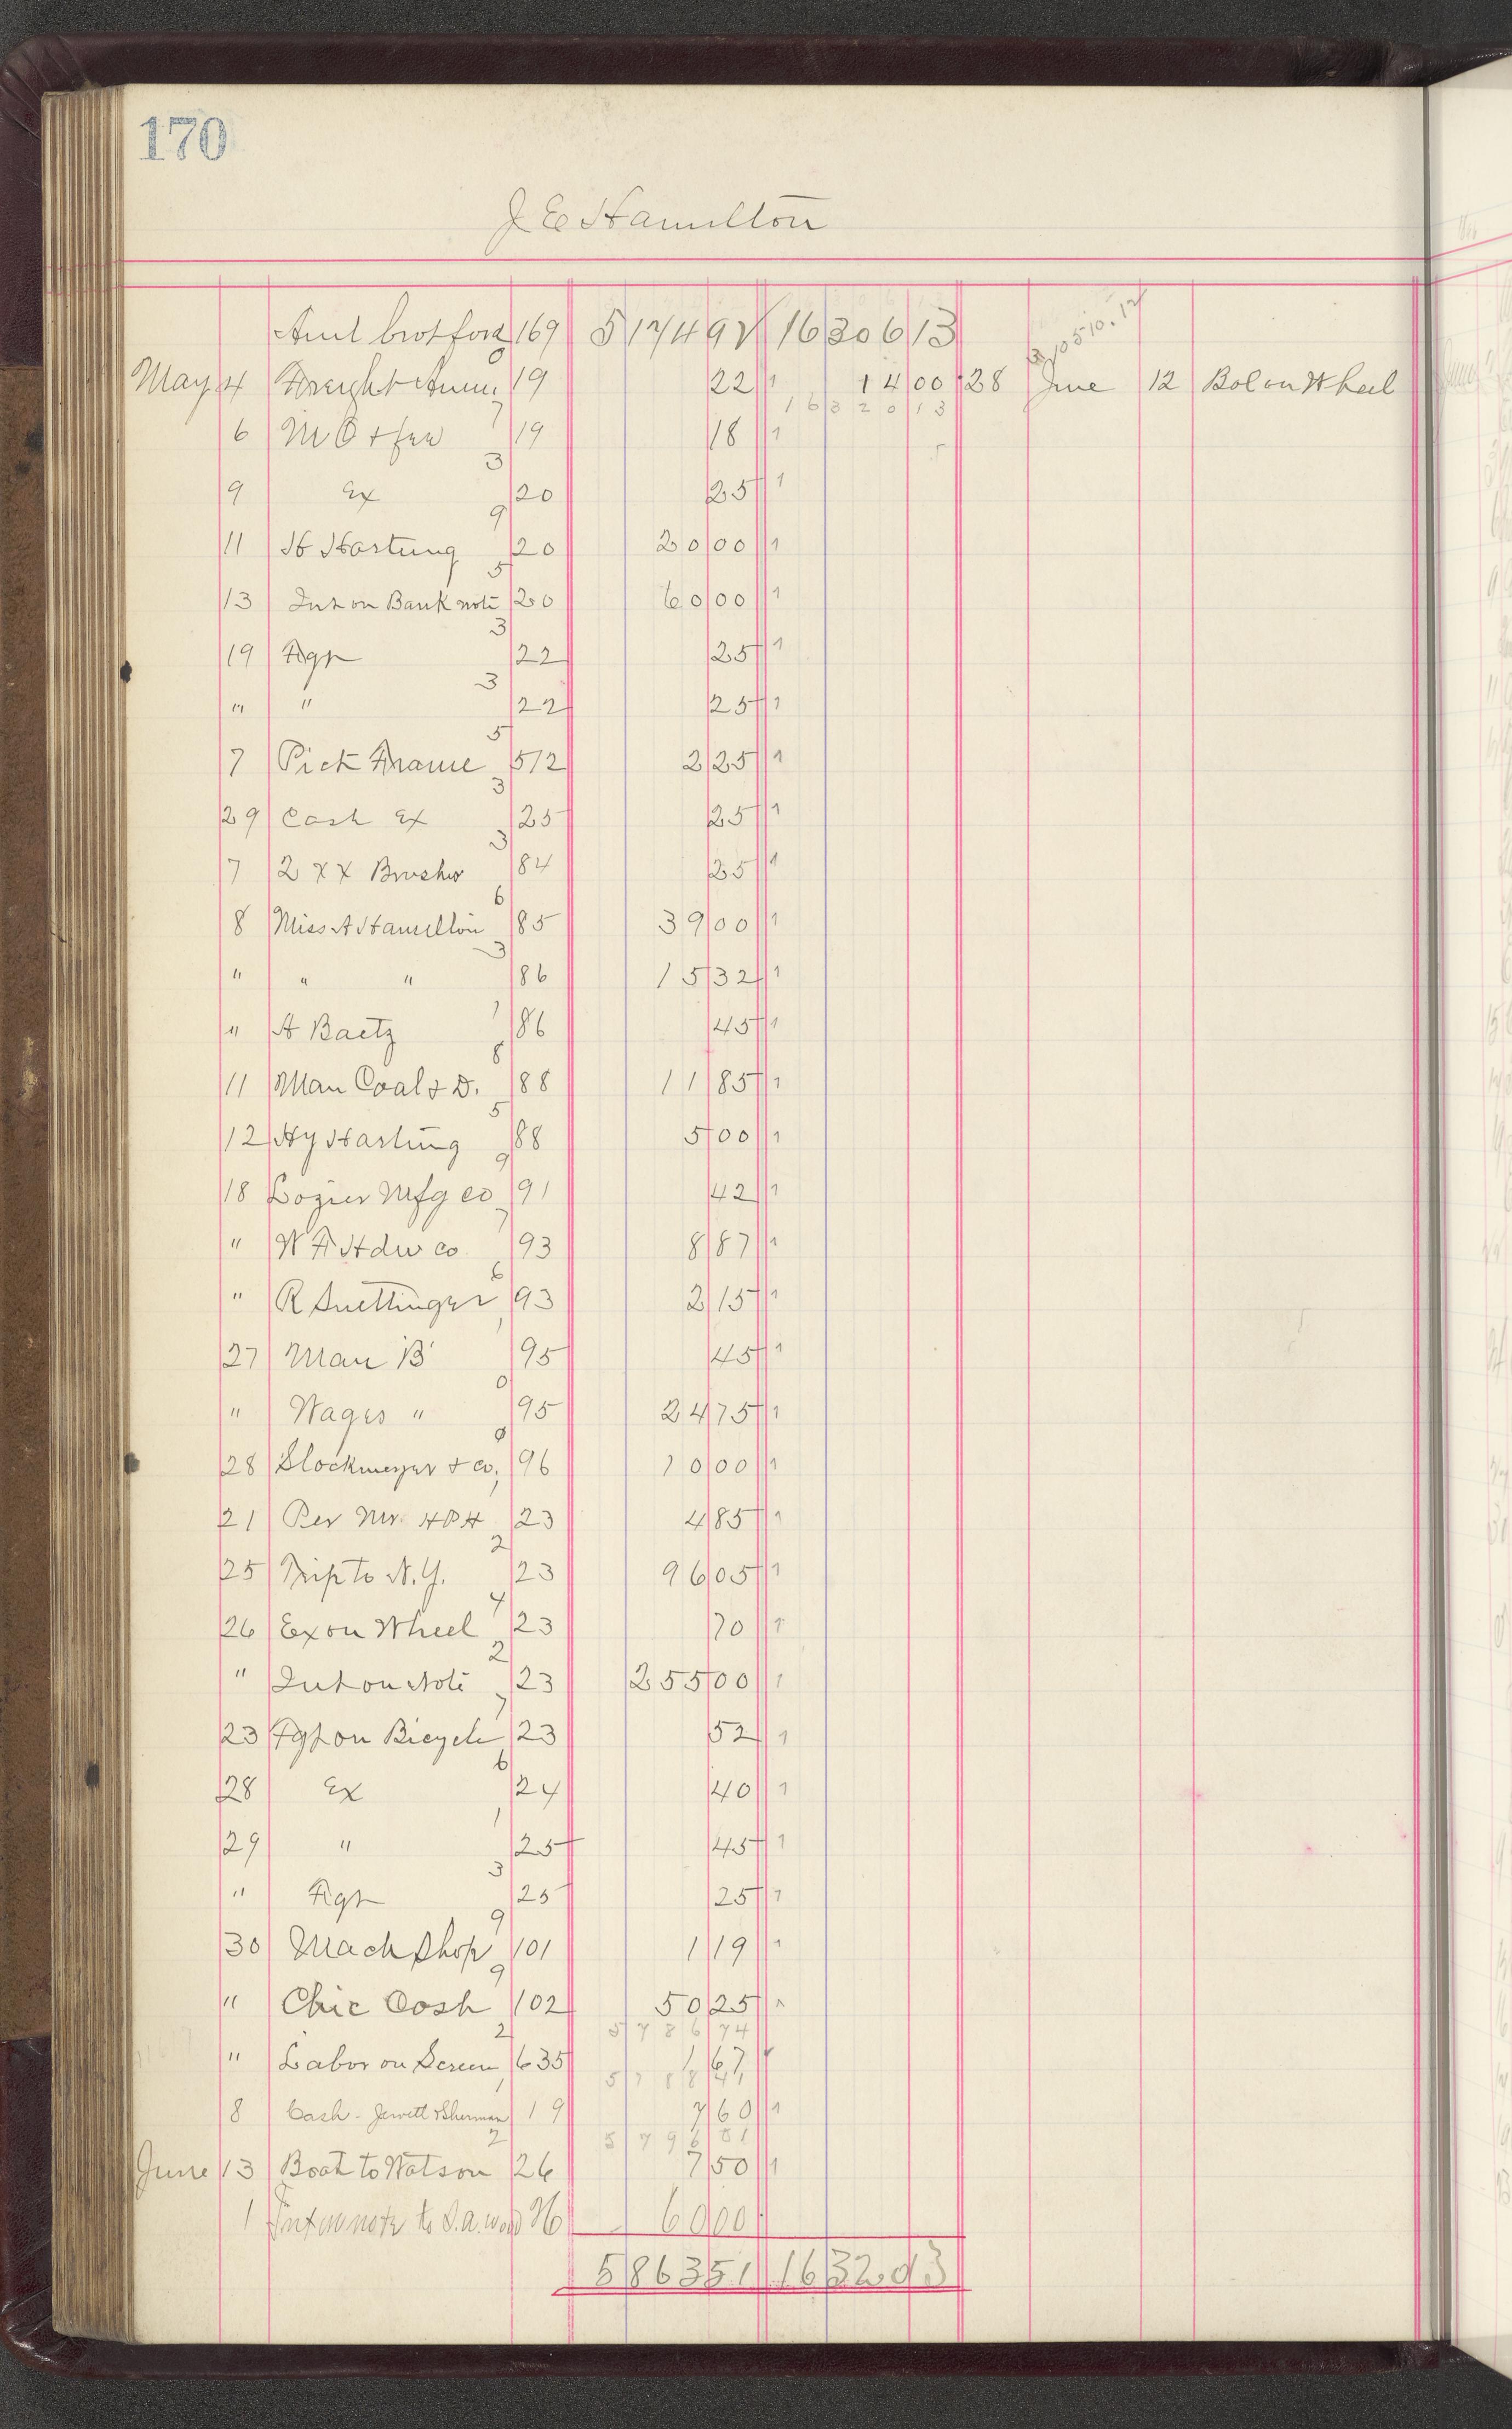 170
J E Hamilton
Amt brot ford 169 5174 92 16306 13
May 4 Freight 19 22 14 00 28 June 12 Bal on Wheel
16320 13
6 M O + fee 19 18
9 Ex 20 25
11 H Hartung 20 20 00
13 Int on Bank note 20 60 00
19 Fgt 22 25
" " 22 25
7 Pict Frame 512 2 25
29 Cash Ex 25 25
7 2 XX Brushes 84 25
8 Miss A Hamilton 85 39 00
" " " 86 15 32
" A Baetz 86 45
11 Man Coal & D. 88 11 85
12 Hy Hartung 88 5 00
18 Lozier Mfg Co 91 42
" W F Hdw Co 93 8 87
" R Suettinger 93 2 15
27 Man 'B' 95 45
" Wages " 95 24 75
28 Slockmeyer & Co, 96 10 00
21 Per Mr. HPH 23 4 85
25 Trip to N.Y. 23 96 05
26 Ex on Wheel 23 70
" Int on Note 23 255 00
23 Fgt on Bicycle 23 52
28 Ex 24 40
29 " 25 45
" Fgt 25 25
30 Mach Shop 101 1 19
" Chic Cash 102 50 25
5786 74
" Labor on Screen 635 1 67
5788 41
8 Cash - Jewett & Sherman 19 7 60
5796 01
June 13 Boat to Watson 26 7 50
1 Int on note to 26 60 00
5863 51 16320 13